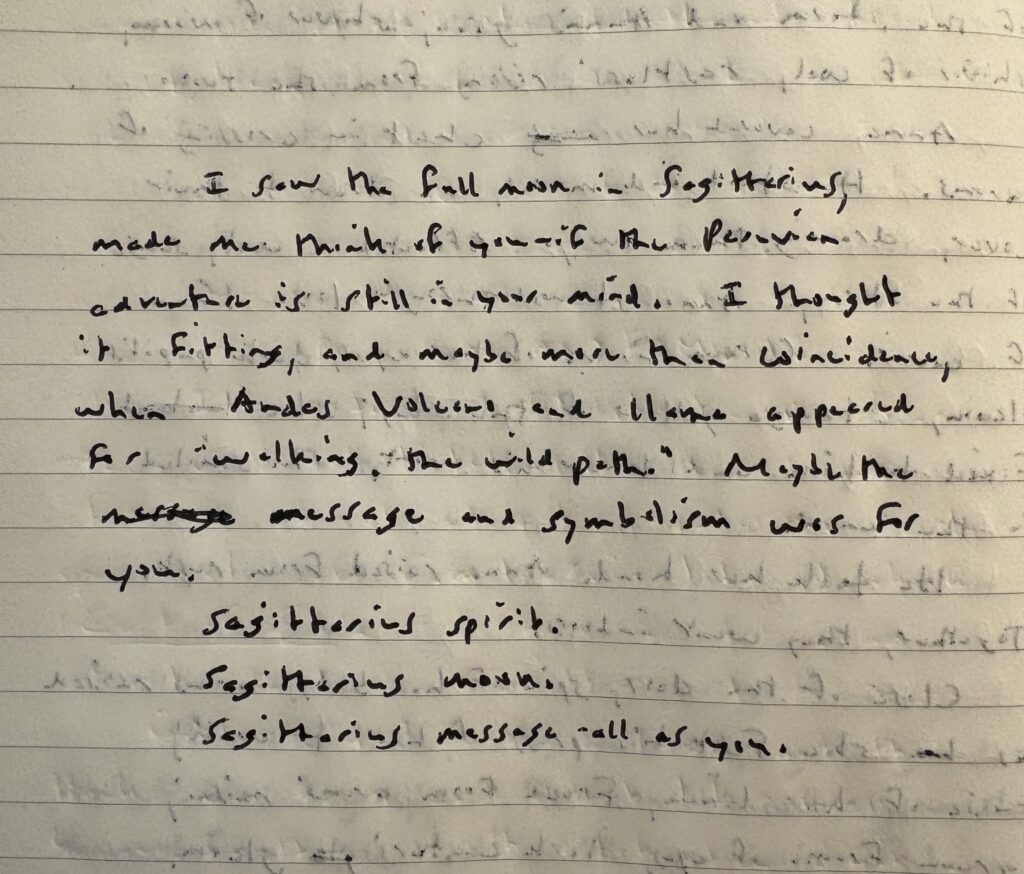 I saw the full moon in Sagittarius,
made me think of you-if the Peruvian
adventure is still in your mind. I thought
it fitting, and maybe more than coincidence,
when Andes Volcano and llama appeared
for "walking the wild path." Maybe the
message message and symbolism was for
you.
Sagittarius spirit.
Sagittarius moon.
Sagittarius message-all as you.